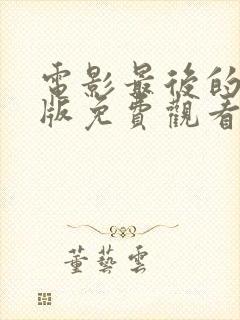 電影最後的
版免費觀看
董藝雲